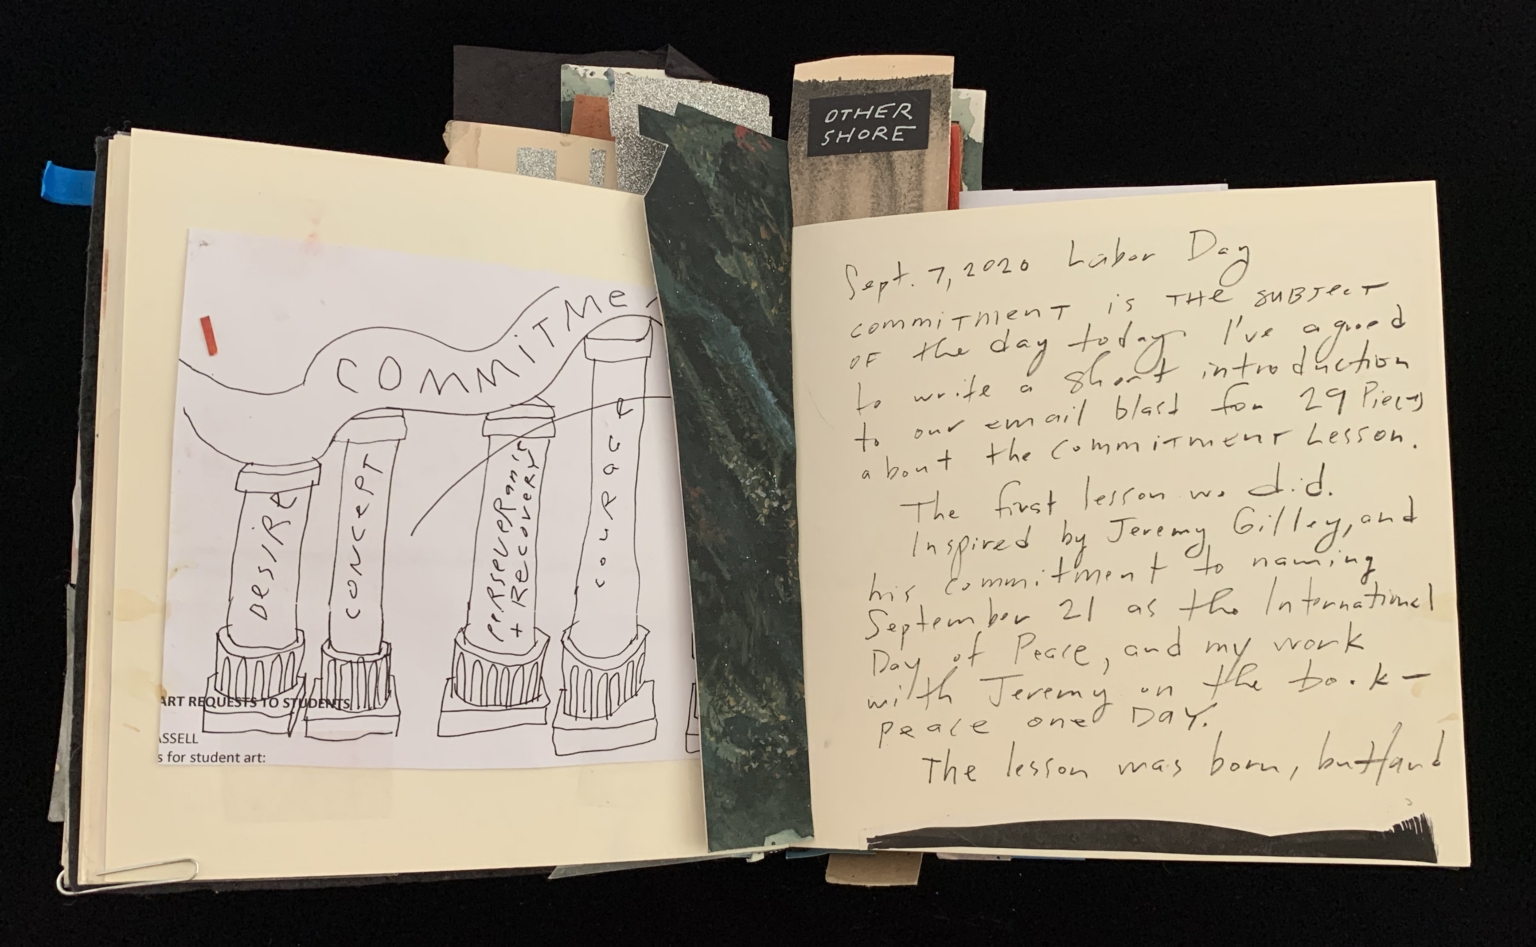 OTHER
SHORE
COMMITME
DESIRE
CONCEPT
PERSEVERANCE
+ RECOVERY
COURAGE
ART REQUESTS TO STUDENTS
ASSELL
s for student art:
Sept. 7, 2020 Labor Day
commitment is the subject
of the day today. I've agreed
to write a short introduction
to our email blast for 29 Pieces
about the Commitment Lesson.
The first lesson we did.
Inspired by Jeremy Gilley, and
his commitment to naming
September 21 as the International
Day of Peace, and my work
with Jeremy on the book—
peace one Day.
The lesson was born,